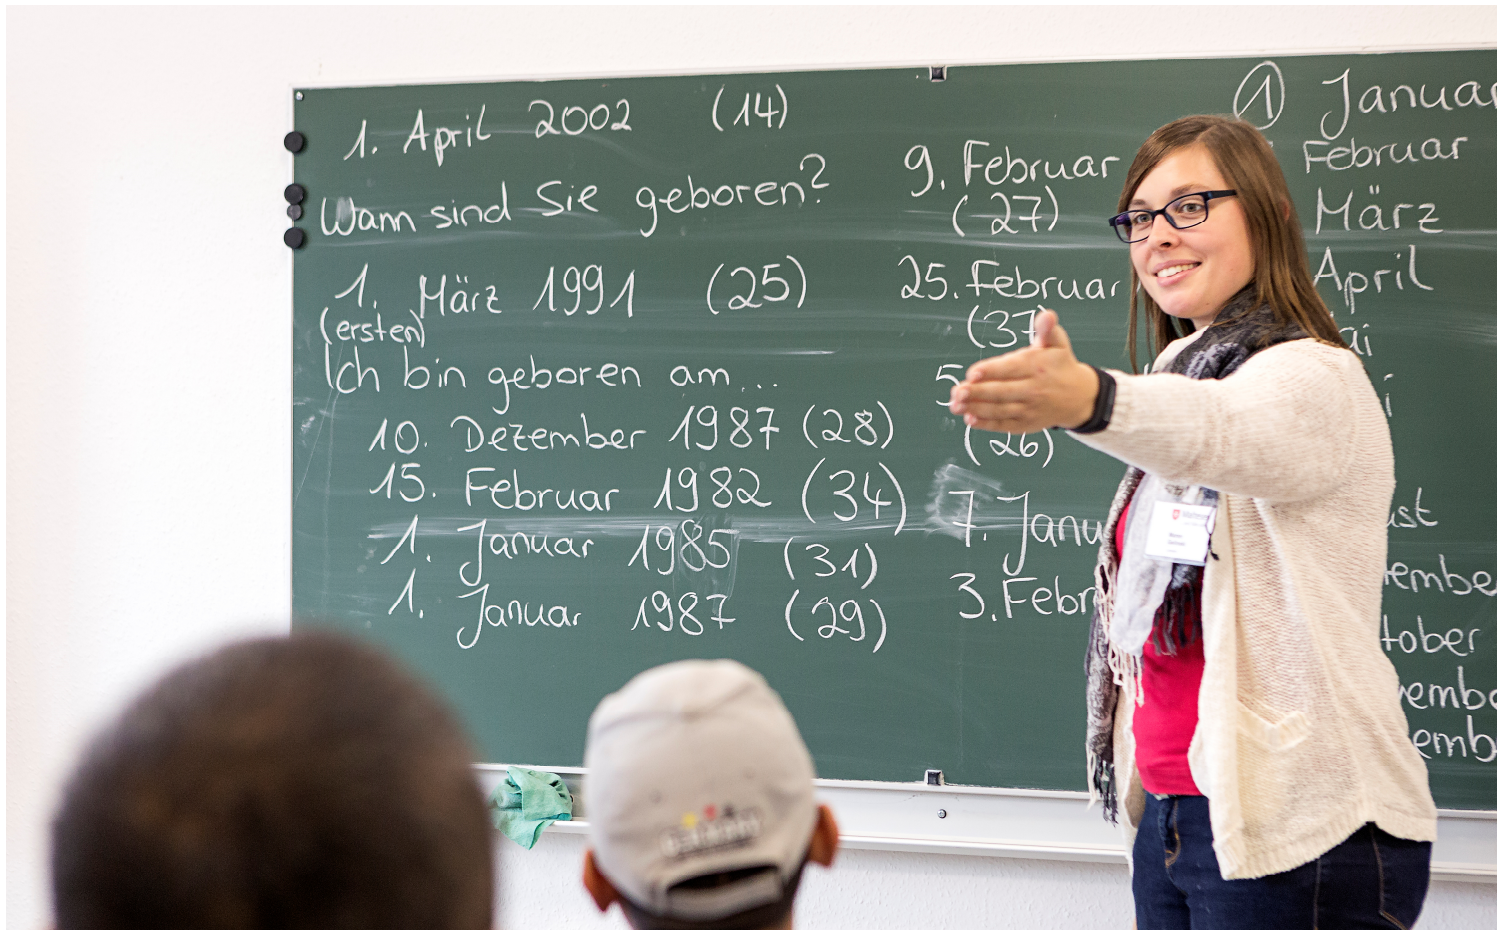 1. April 2002 (14)
Wann sind Sie geboren?
1. März 1991 (25)
(ersten)
Ich bin geboren am...
10. Dezember 1987 (28)
15. Februar 1982 (34)
1. Januar 1985 (31)
1. Januar 1987 (29)
9. Februar
(27)
25. Februar
(37)
5
(26)
7. Janu
3. Febr
1 Januar
Februar
März
April
ai
i
ust
tembe
tober
vembe
emb